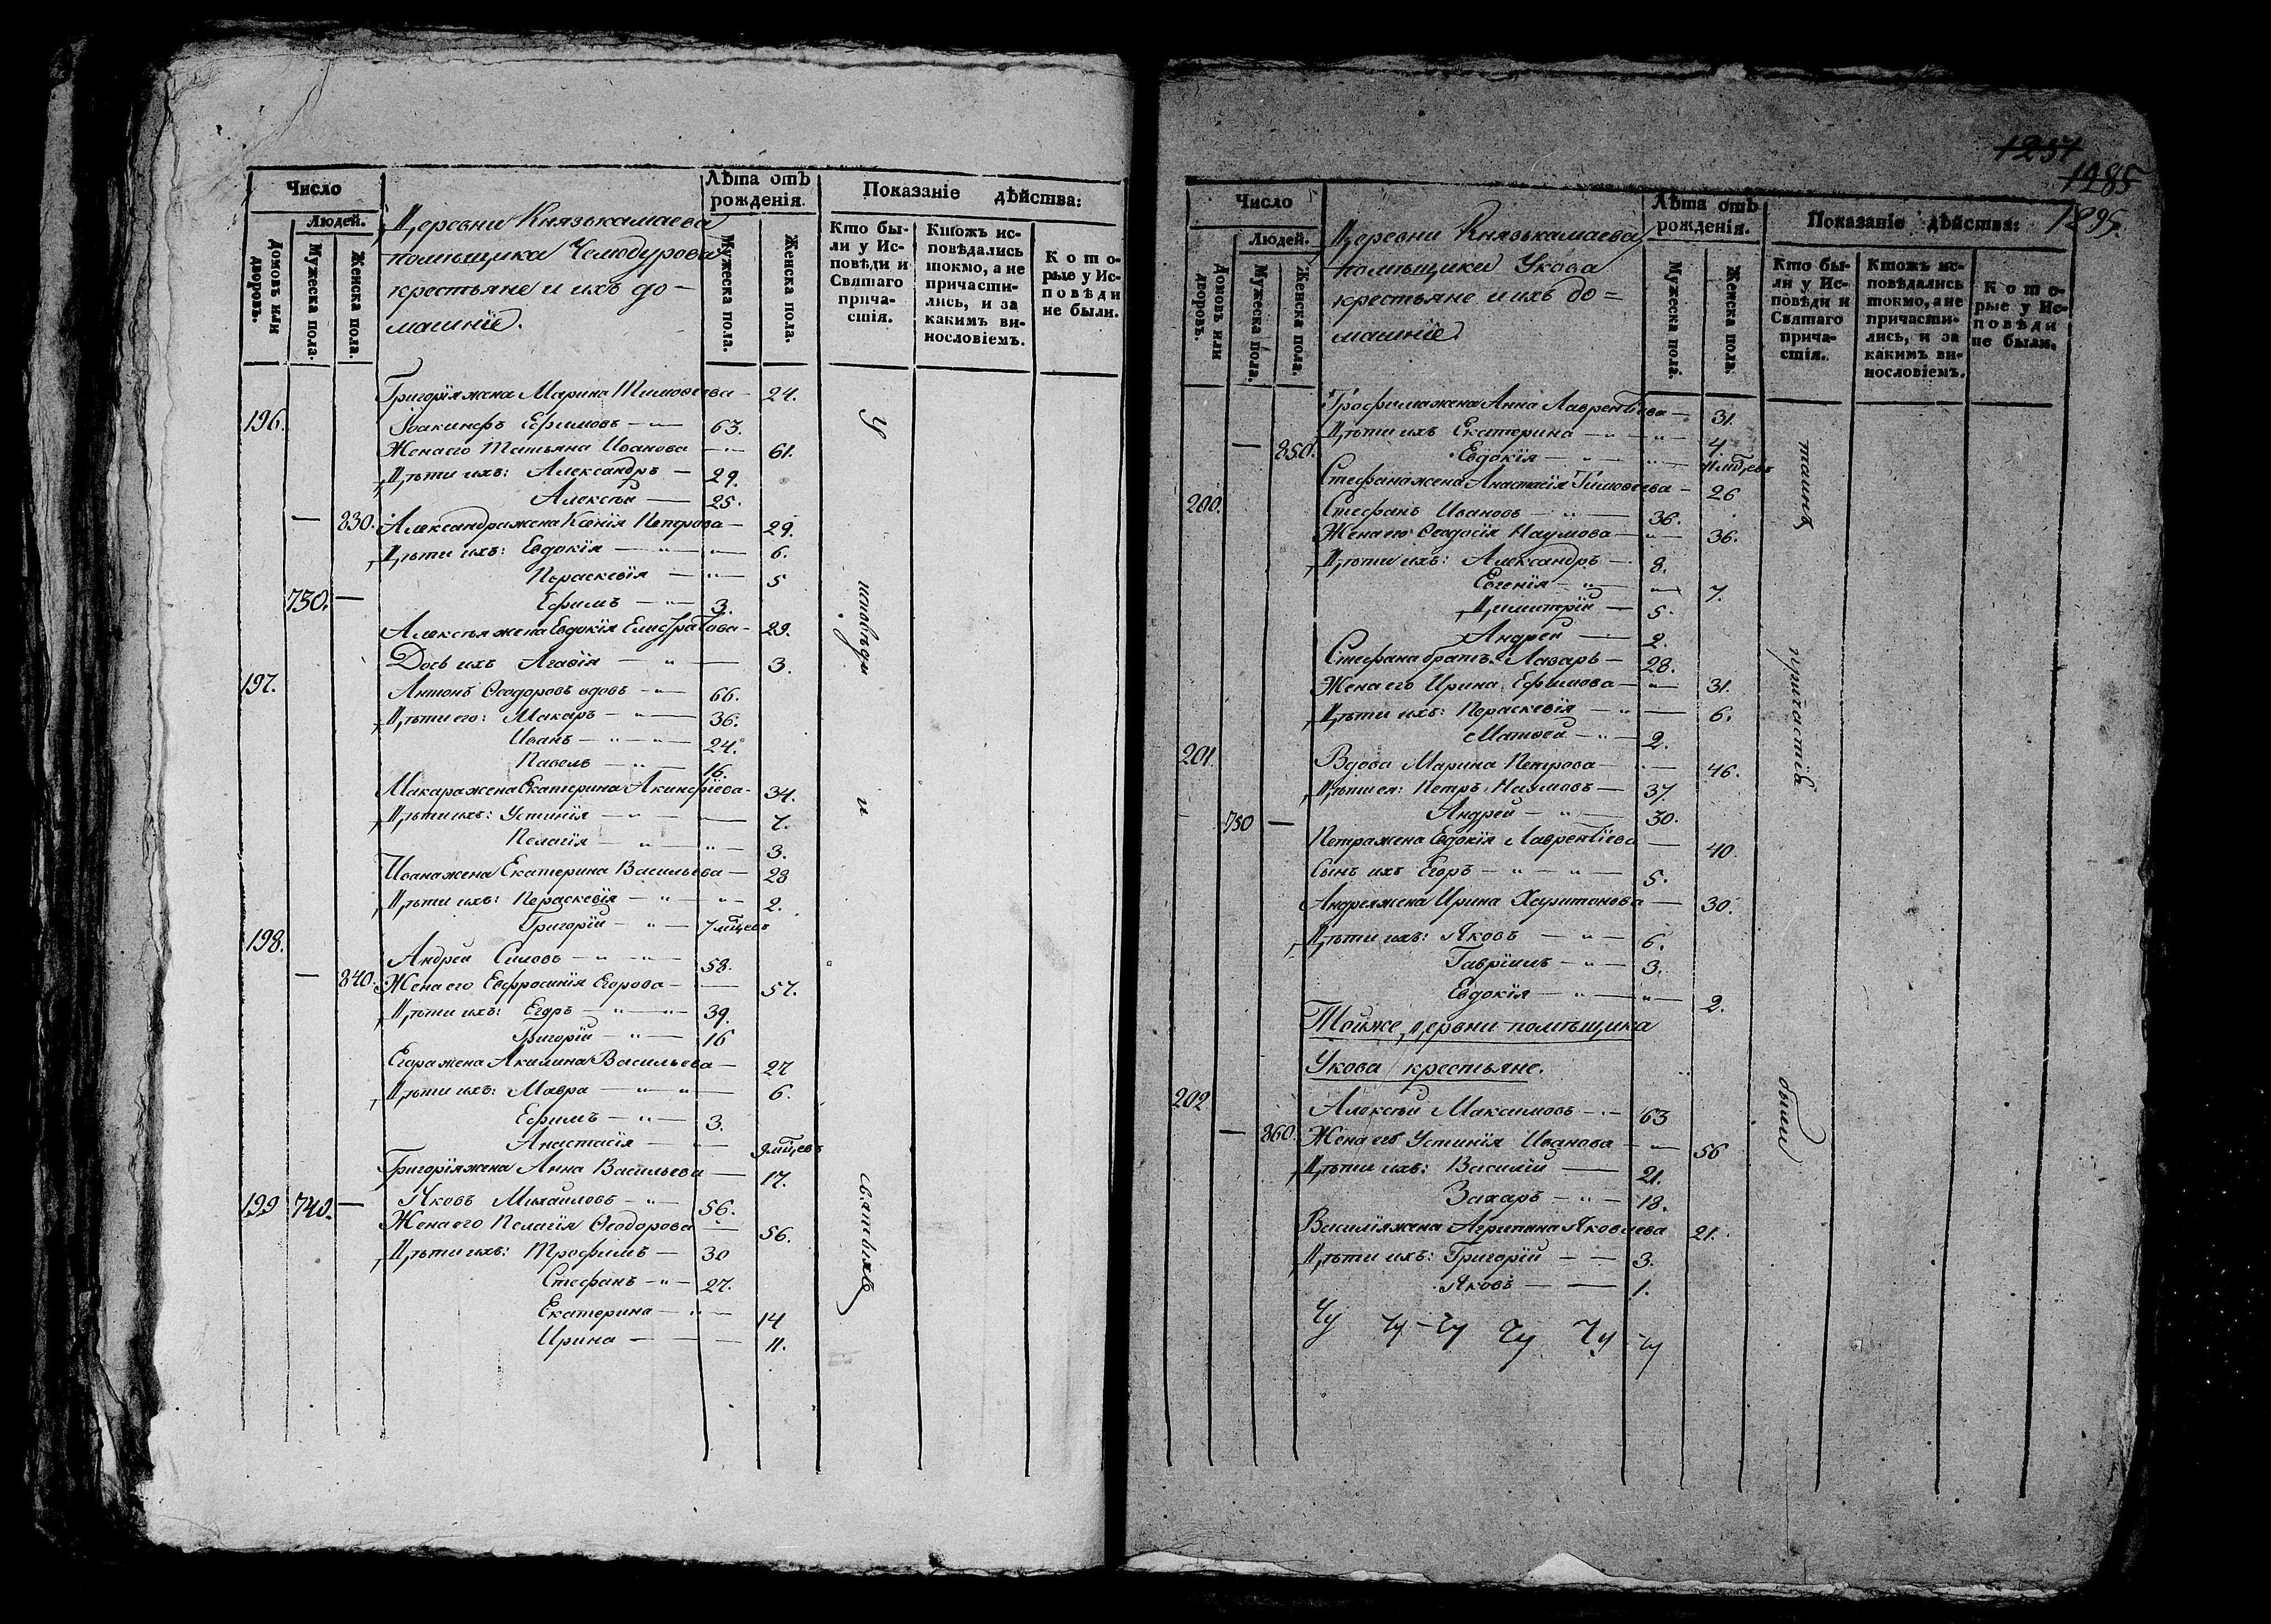 Число
Людей.
Домовъ или дворовъ.
Мужеска пола.
Женска пола.
Деревни Князькамаева
помѣщика Чемодурова
крестьяне и ихъ до-
машніе.
Лѣта отъ рожденія.
Мужеска пола.
Женска пола.
Показаніе дѣйства:
Кто бы-
ли у Ис-
повѣди и
Святаго
прича-
стія.
Ктожъ ис-
повѣдались
токмо, а не
причасти-
лись, и за
какимъ ви-
нословіемъ.
Кото-
рые у Ис-
повѣди
не были.
Григорія жена Марина Тимофеева — 24.
196. Іоакинфъ Ефимовъ — 63.
Жена его Татьяна Иванова — 61.
Дѣти ихъ: Александръ — 29.
Алексѣй — 25.
— 830. Александра жена Ксенія Петрова — 29.
Дѣти ихъ: Евдокія — 6.
Пераскевія — 5
730. — Ефимъ — 3.
Алексѣя жена Евдокія Елистратова — 29.
Дочь ихъ Агафія — 3.
197. Антонъ Ѳеодоровъ вдовъ — 66.
Дѣти его: Макаръ — 36.
Иванъ — 24.
Павелъ — 16.
Макара жена Екатерина Акинфіева — 34.
Дѣти ихъ: Устинія — 7.
Пелагія — 3.
Ивана жена Екатерина Васильева — 28
Дѣти ихъ: Пераскевія — 2.
Григорій — 7 мцевъ
198. Андрей Силовъ — 58.
— 840. Жена его Евфросинія Егорова — 57.
Дѣти ихъ: Егоръ — 39.
Григорій — 16
Егора жена Акилина Васильева — 27
Дѣти ихъ: Мавра — 6.
Ефимъ — 3.
Анастасія — 9 мцевъ
Григорія жена Анна Васильева — 17.
199 740. — Яковъ Михаиловъ — 56.
Жена его Пелагія Ѳеодорова — 56.
Дѣти ихъ: Трофимъ — 30
Стефанъ — 27.
Екатерина — 14
Ирина — 11.
У исповѣди и святыхъ
1237
1285
1295.
Число
Людей.
Домовъ или дворовъ.
Мужеска пола.
Женска пола.
Деревни Князькамаева
помѣщика Укова
крестьяне и ихъ до=
машніе
Лѣта отъ рожденія.
Мужеска пола.
Женска пола.
Показаніе дѣйства:
Кто бы-
ли у Ис-
повѣди и
Святаго
прича-
стія.
Ктожъ ис-
повѣдались
токмо, а не
причасти-
лись, и за
какимъ ви-
нословіемъ.
Кото-
рые у Ис-
повѣди
не были.
Трофима жена Анна Лаврентіева — 31.
Дѣти ихъ Екатерина — 4.
— 850. Евдокія — мцевъ
Стефана жена Анастасія Тимофеева — 26
200. Стефанъ Ивановъ — 36.
Жена его Ѳеодосія Наумова — 36.
Дѣти ихъ: Александръ — 8.
Евгенія — 7.
Димитрій — 5.
Андрей — 2.
Стефана братъ Лазарь — 28.
Жена его Ирина Ефимова — 31.
Дѣти ихъ: Пераскевія — 6.
Матвей — 2.
201. Вдова Марина Петрова — 46.
Дѣти ея: Петръ Наумовъ — 37.
750 — Андрей — 30.
Петра жена Евдокія Лаврентіева — 40.
Сынъ ихъ Егоръ — 5.
Андрея жена Ирина Харитонова — 30.
Дѣти ихъ: Яковъ — 6.
Гавріилъ — 3.
Евдокія — 2.
Тойже деревни помѣщика
Укова крестьяне.
202. Алексѣй Максимовъ — 63
— 860. Жена его Устинія Иванова — 56
Дѣти ихъ: Василій — 21.
Захаръ — 18.
Василія жена Агрипина Яковлева 21.
Дѣти ихъ: Григорій — 3.
Яковъ — 1.
таинъ причастія были